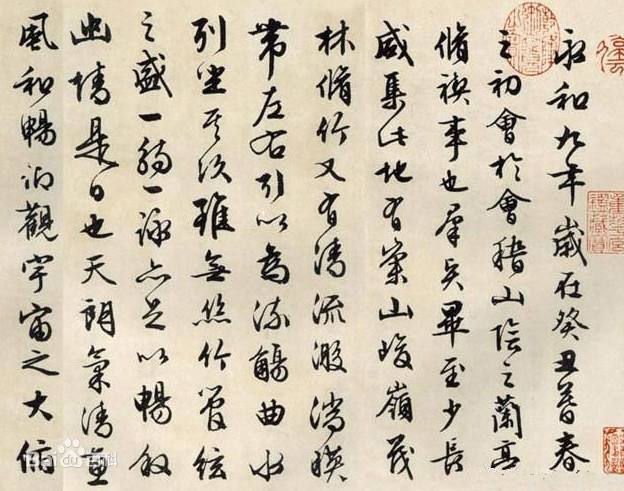 永和九年歲在癸丑暮春
之初會於會稽山陰之蘭亭
脩禊事也羣賢畢至少長
咸集此地有崇山峻嶺茂
林脩竹又有清流激湍暎
帶左右引以為流觴曲水
列坐其次雖無絲竹管絃
之盛一觴一詠亦足以暢敘
幽情是日也天朗氣清惠
風和暢仰觀宇宙之大俯
Bai 百科